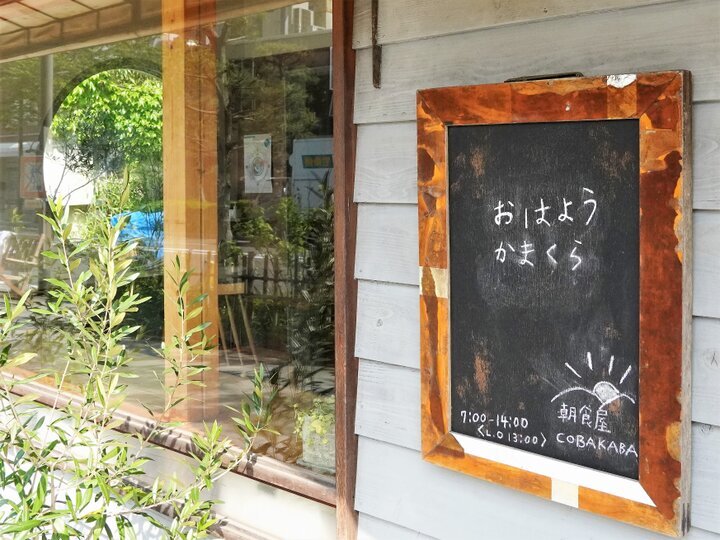 おはよう
かまくら
7:00-14:00
〈L.O 13:00〉
朝食屋
COBAKABA